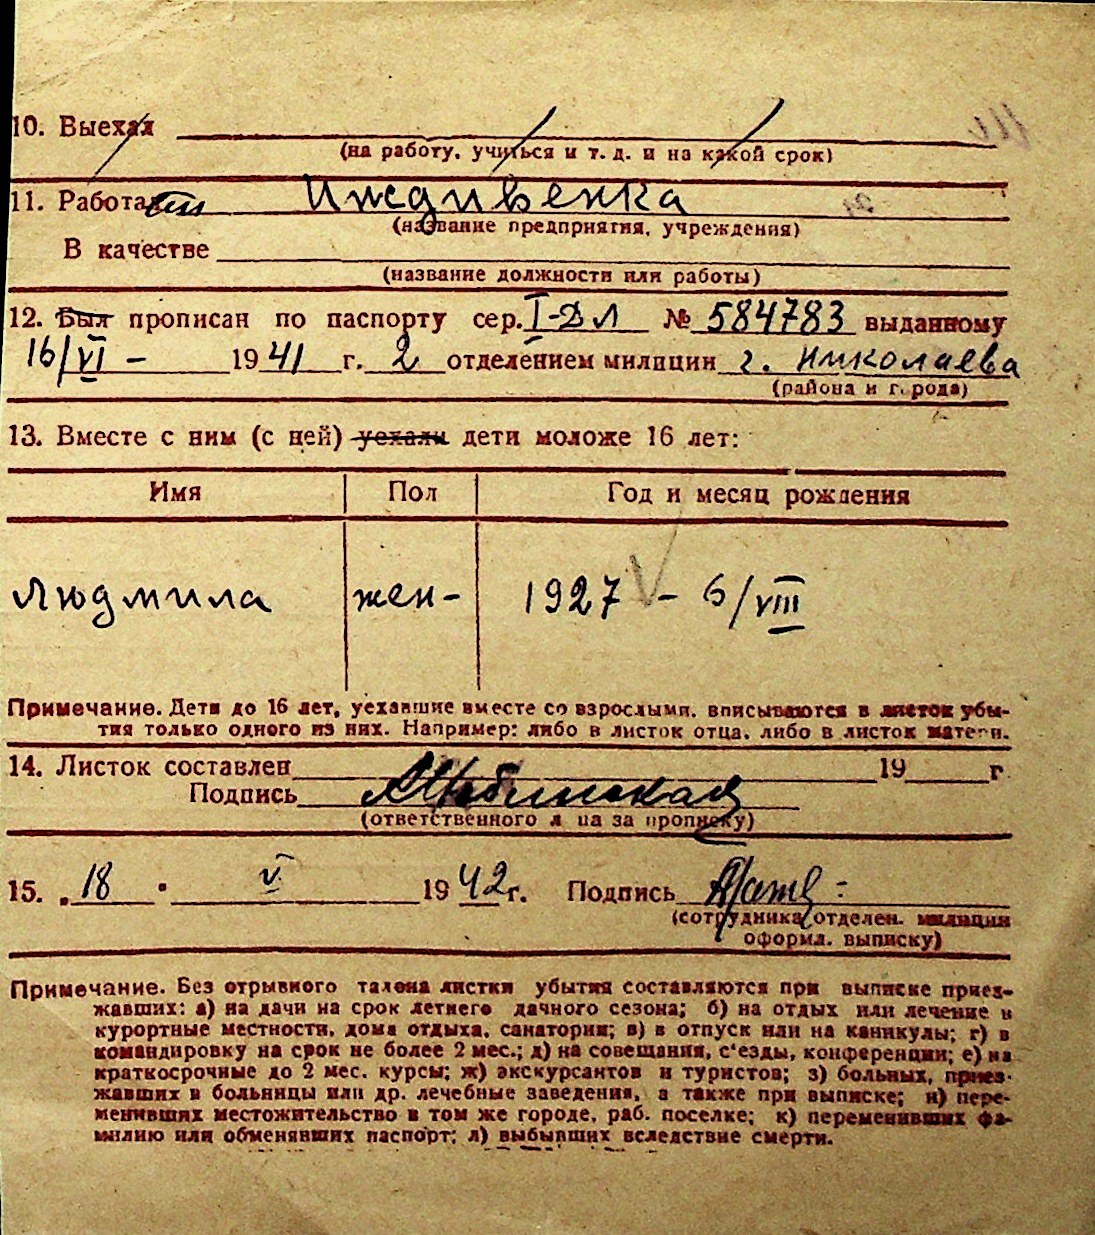 10. Выехал
(на работу, учиться и т. д. и на какой срок)
11. Работает Иждивенка
(название предприятия, учреждения)
В качестве
(название должности или работы)
12. Был прописан по паспорту сер. I-ДЛ № 584783 выданному
16/VI - 1941 г. 2 отделением милиции г. Николаева
(района и города)
13. Вместе с ним (с ней) уехали дети моложе 16 лет:
Имя Пол Год и месяц рождения
Людмила жен- 1927 - 6/VIII
Примечание. Дети до 16 лет, уехавшие вместе со взрослыми, вписываются в листок убы-
тия только одного из них. Например: либо в листок отца, либо в листок матери.
14. Листок составлен 19 г
Подпись
(ответственного лица за прописку)
15. „18" V 1942 г. Подпись
(сотрудника отделен. милиции
оформл. выписку)
Примечание. Без отрывного талона листки убытия составляются при выписке приез-
жавших: а) на дачи на срок летнего дачного сезона; б) на отдых или лечение в
курортные местности, дома отдыха, санатории; в) в отпуск или на каникулы; г) в
командировку на срок не более 2 мес.; д) на совещания, с'езды, конференции; е) на
краткосрочные до 2 мес. курсы; ж) экскурсантов и туристов; з) больных, приез-
жавших в больницы или др. лечебные заведения, а также при выписке; и) пере-
менивших местожительство в том же городе, раб. поселке; к) переменивших фа-
милию или обменявших паспорт; л) выбывших вследствие смерти.